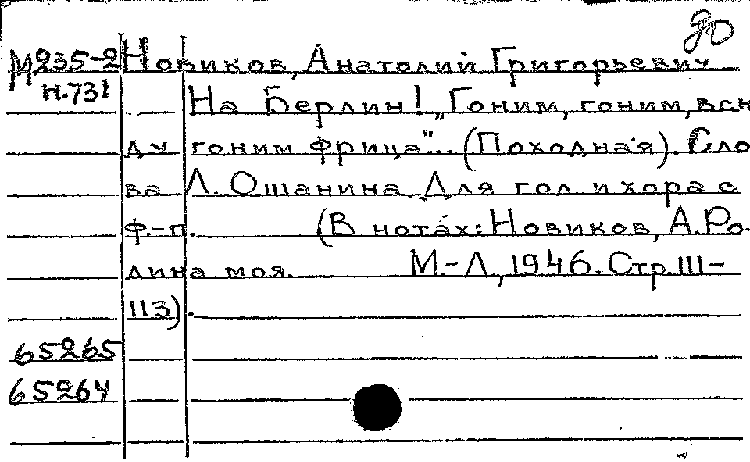 до
М235-2 Новиков, Анатолий Григорьевич
н.731 На Берлин! „Гоним, гоним, всю
ду гоним фрица"... (Походная). Сло
ва Л. Ошанина. Для гол. и хора с
ф.-п. (В нотах: Новиков, А. Ро-
дина моя. М.-Л., 1946. Стр. 111-
113).
65265
65264